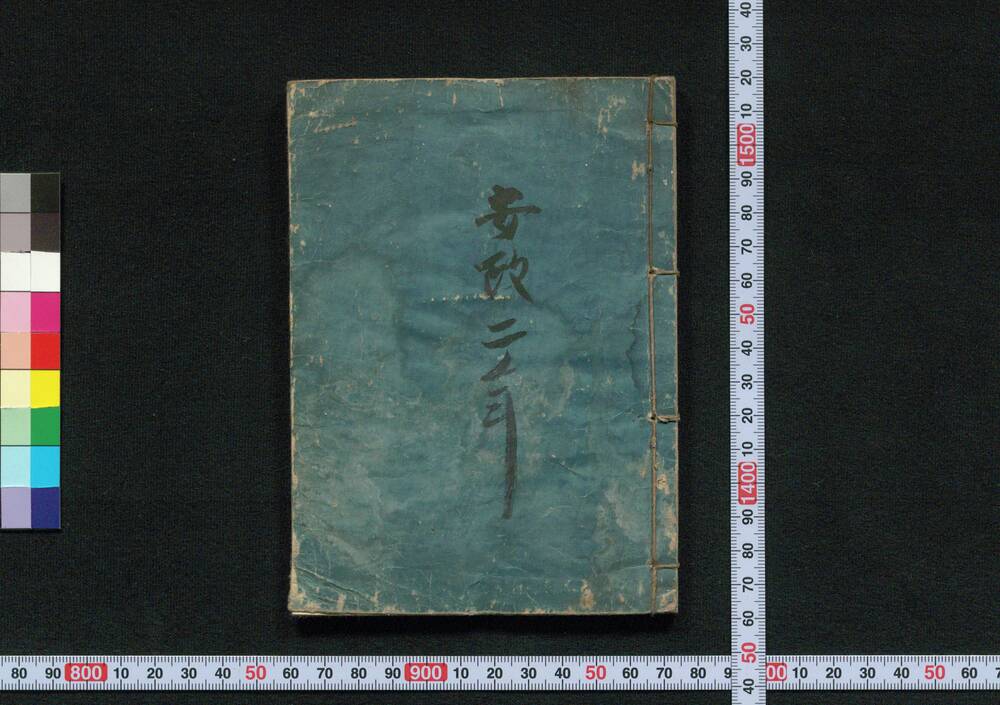 安政二年
80 90 800 10 20 30 40 50 60 70 80 90 900 10 20 30 40 50 60 70 80 9 00 10 20 30 40 50 60 7
40 30 20 10 1500 90 80 70 60 50 40 30 20 10 1400 90 80 70 60 50 40